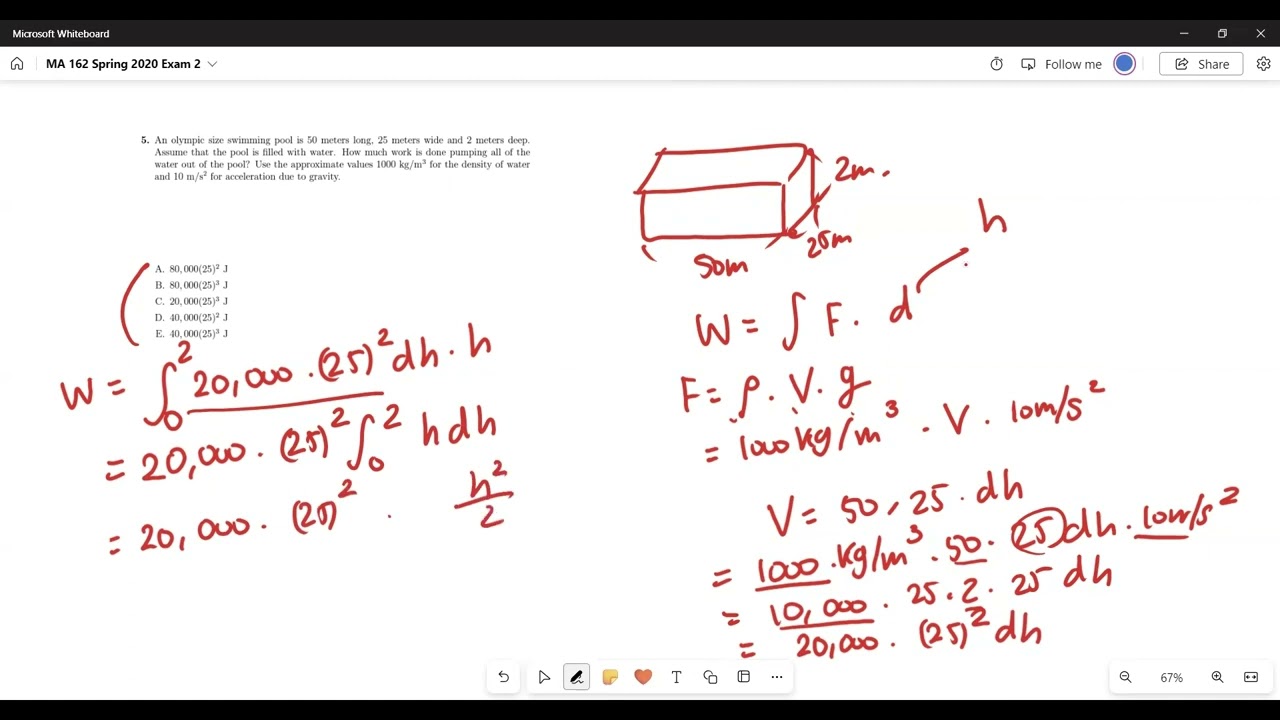 Microsoft Whiteboard
MA 162 Spring 2020 Exam 2
Follow me
Share
5. An olympic size swimming pool is 50 meters long, 25 meters wide and 2 meters deep.
Assume that the pool is filled with water. How much work is done pumping all of the
water out of the pool? Use the approximate values 1000 kg/m³ for the density of water
and 10 m/s² for acceleration due to gravity.
A. 80,000(25)² J
B. 80,000(25)³ J
C. 20,000(25)³ J
D. 40,000(25)² J
E. 40,000(25)³ J
W = ∫₀² 20,000 · (25)² dh · h
= 20,000 · (25)² ∫₀² h dh
= 20,000 · (25)² · h²/2
2m.
25m
50m
h
W = ∫ F. d
F = ρ . V. g
= 1000 kg/m³ . V . 10m/s²
V = 50 . 25 . dh
= 1000 . kg/m³ . 50 . 25 dh . 10m/s²
= 10,000 . 25 . 2 . 25 dh
= 20,000 . (25)² dh
67%